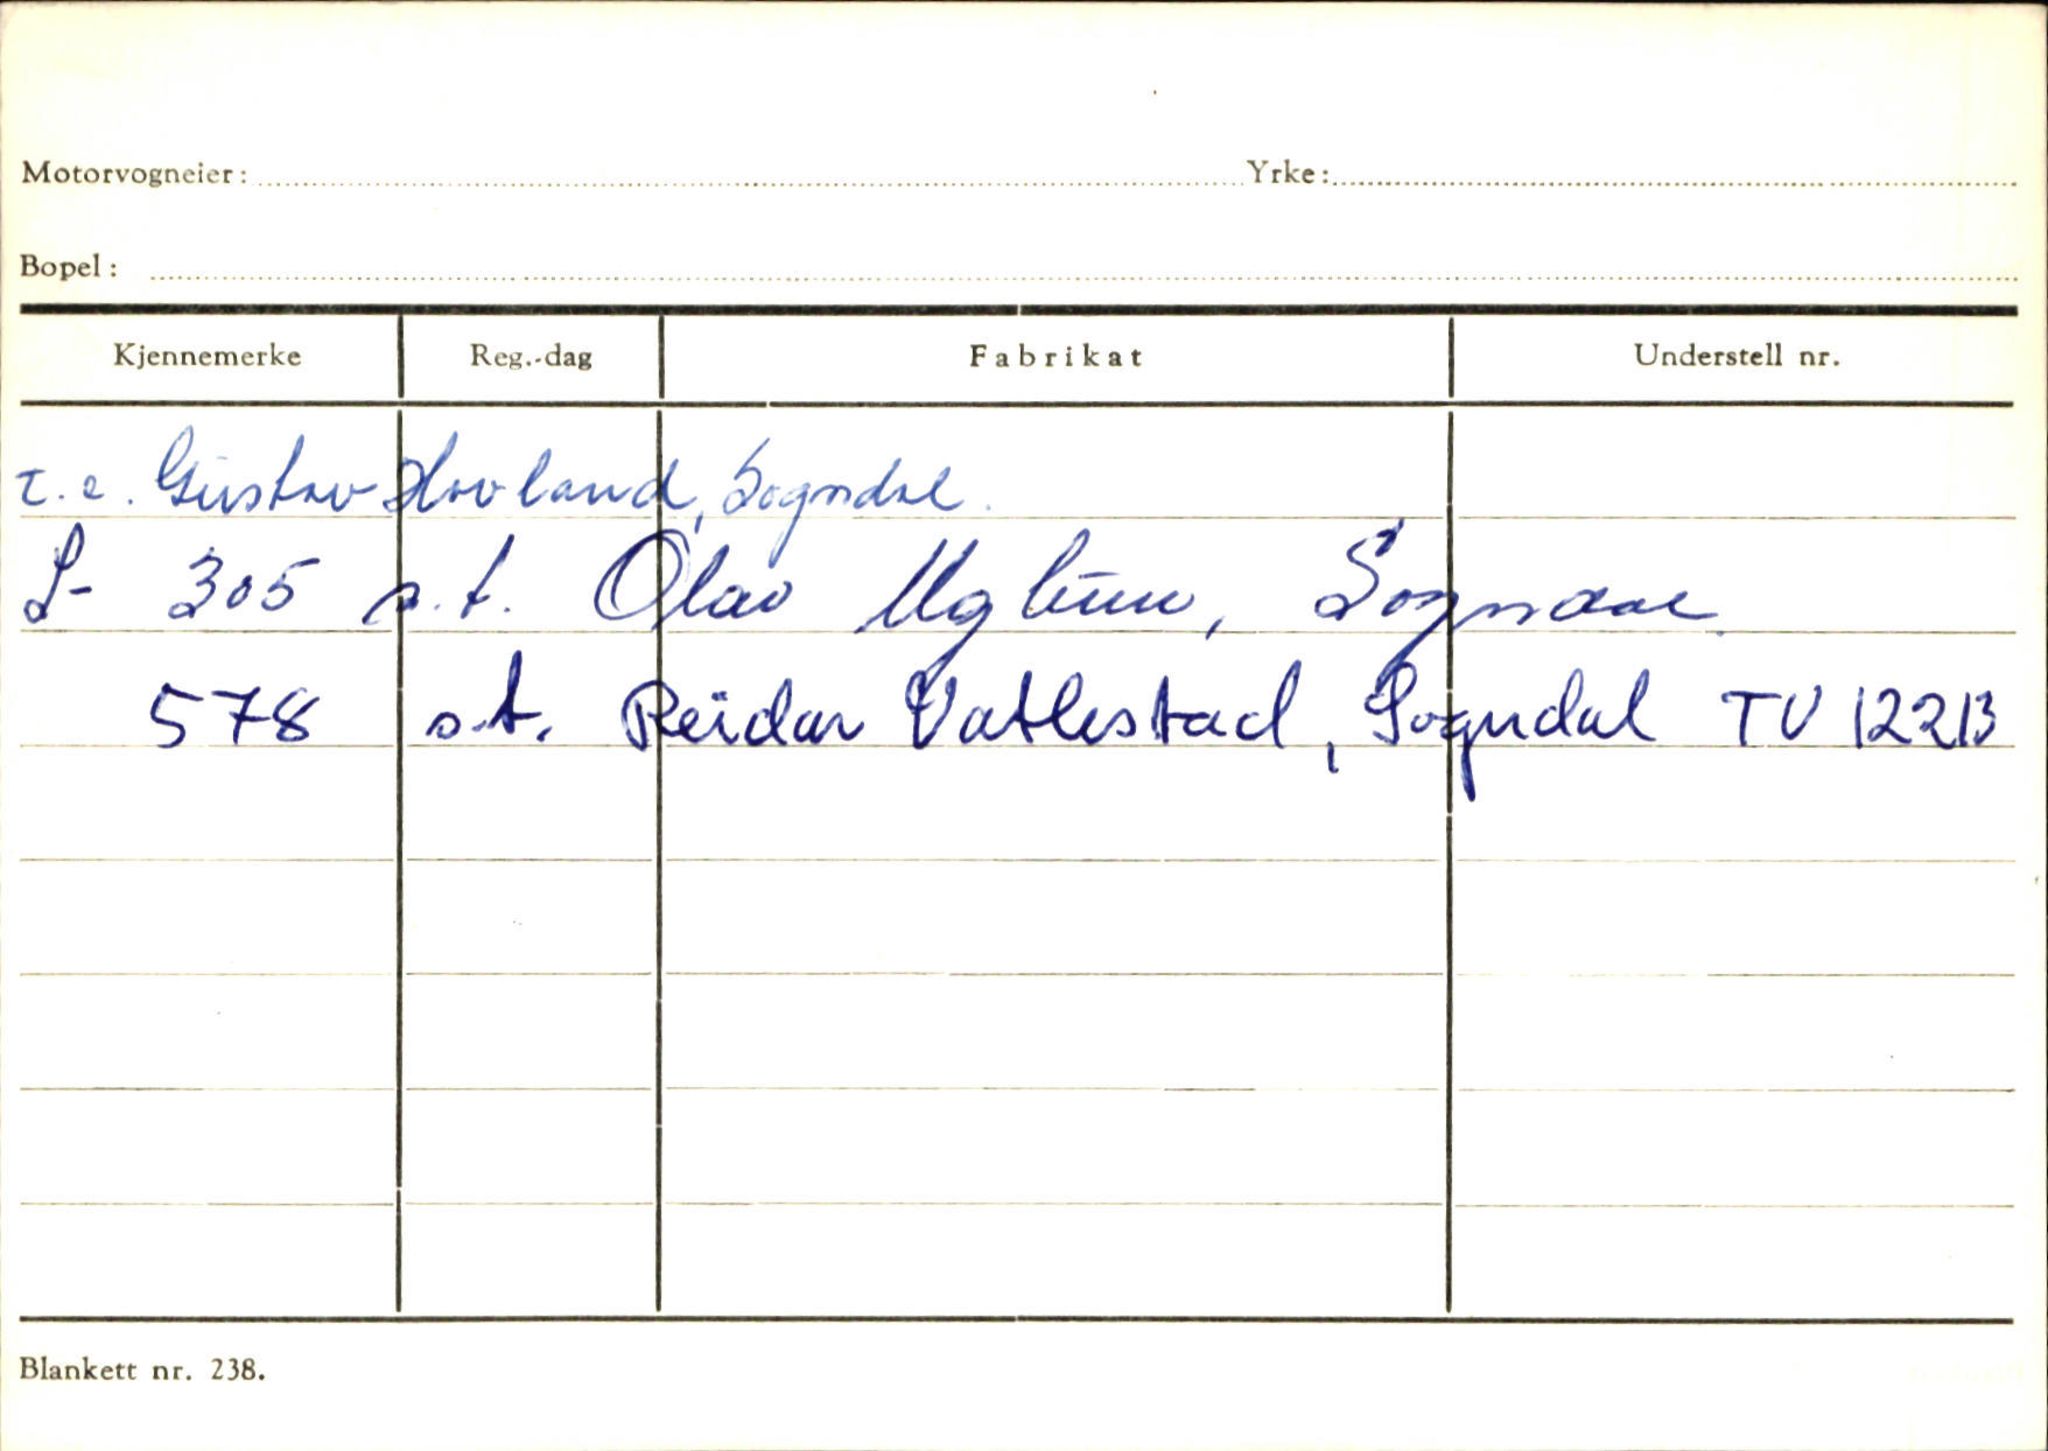 Motorvogneier: Yrke:
Bopel:
Kjennemerke Reg.-dag Fabrikat Understell nr.
t.e. Gustav Hovland, Sogndal.
S- 305 s.t. Olav Uglum, Sogndal.
578 s.t. Reidar Vatlestad, Sogndal TV 12213
Blankett nr. 238.